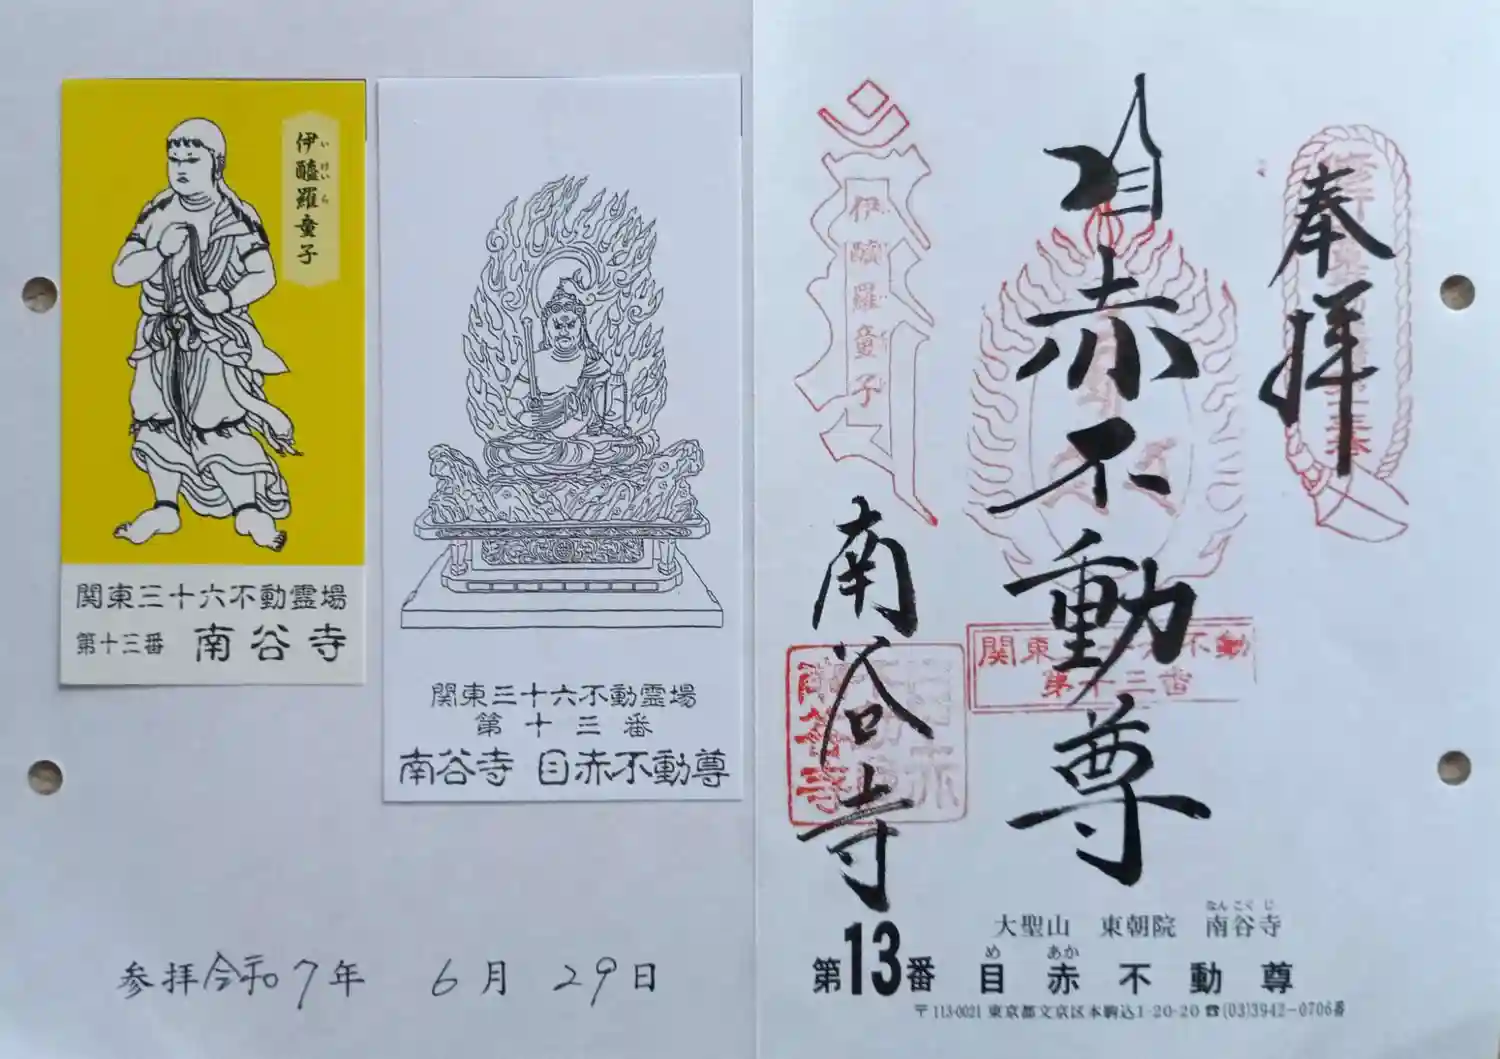 伊醯羅童子
いけいら
関東三十六不動霊場
第十三番 南谷寺
関東三十六不動霊場
第十三番
南谷寺 目赤不動尊
参拝令和7年 6月 29日
奉拝
目赤不動尊
伊醯羅童子
南谷寺
関東三十六不動
第十三番
大聖山 東朝院 南谷寺
なんこくじ
第13番 目赤不動尊
め あか
〒113-0021 東京都文京区本駒込1-20-20 ☎(03)3942-0706番